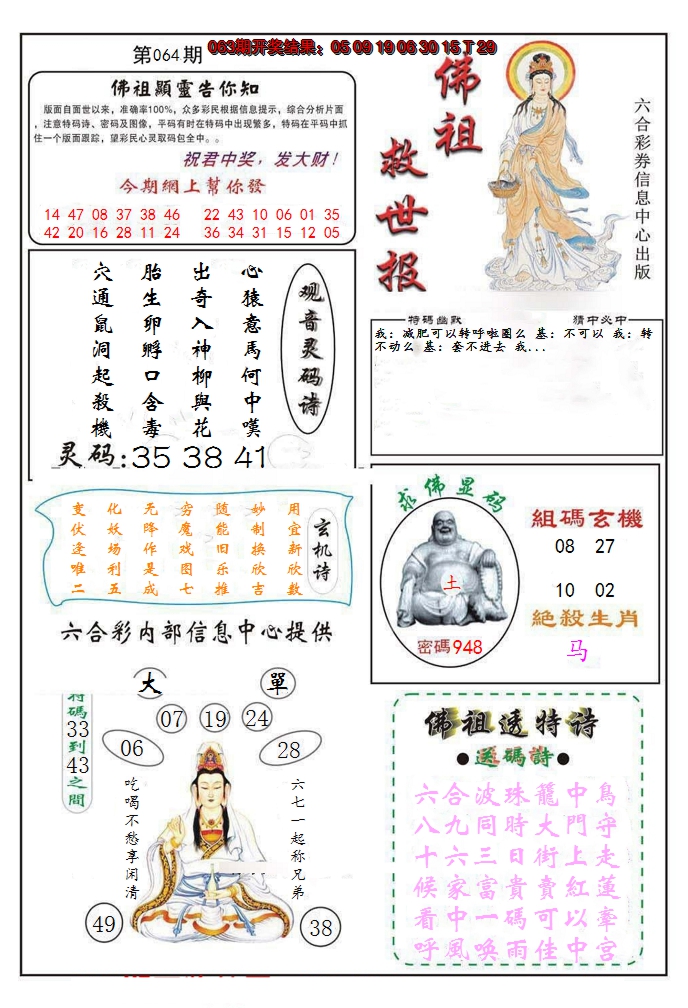 第064期
063期开奖结果：05 09 19 06 30 15 T 29
佛祖顯靈告你知
版面自面世以来，准确率100%，众多彩民根据信息提示，综合分析片面
，注意特码诗、密码及图像，平码有时在特码中出现繁多，特码在平码中抓
住一个版面跟踪，望彩民心灵取码包全中。。
祝君中奖，发大财！
今期網上幫你發
14 47 08 37 38 46 22 43 10 06 01 35
42 20 16 28 11 24 36 34 31 15 12 05
佛祖
救世报
六合彩券信息中心出版
观音灵码诗
心猿意馬何中嘆
出奇入神柳與花
胎生卵孵口含毒
穴通鼠洞起殺機
灵码:35 38 41
特碼幽默
猜中必中
我：减肥可以转呼啦圈么 基：不可以 我：转
不动么 基：套不进去 我...
玄机诗
用宜新欣数
妙制换欣吉
随能旧乐推
穷魔戏图七
无降作是成
化妖场利五
变伏逢唯二
六合彩内部信息中心提供
求佛显码
土
密碼948
組碼玄機
08 27
10 02
絶殺生肖
马
大
單
特碼33到43之間
07 19 24
06
28
吃喝不愁享闲清
六七一起称兄弟
49
38
佛祖透特诗
●送碼詩●
六合波珠籠中鳥
八九同時大門守
十六三日街上走
候家富貴賣紅蓮
看中一碼可以牽
呼風唤雨佳中宫